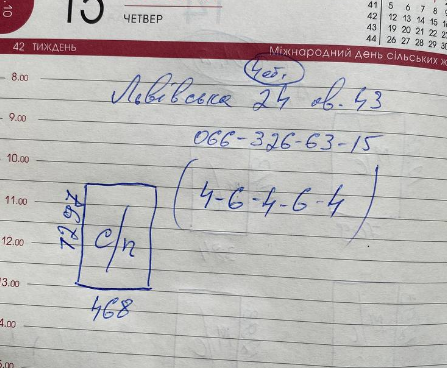 .10
15
ЧЕТВЕР
41 5 6 7 8
42 12 13 14 15 16
43 19 20 21 22 23
44 26 27 28 29 30
42 ТИЖДЕНЬ
Міжнародний день сільських ж
8.00
Львівська 24 кв. 43
9.00
066-326-63-15
10.00
(4-6-4-6-4)
11.00
1297
с/п
12.00
13.00
468
4.00
5.00